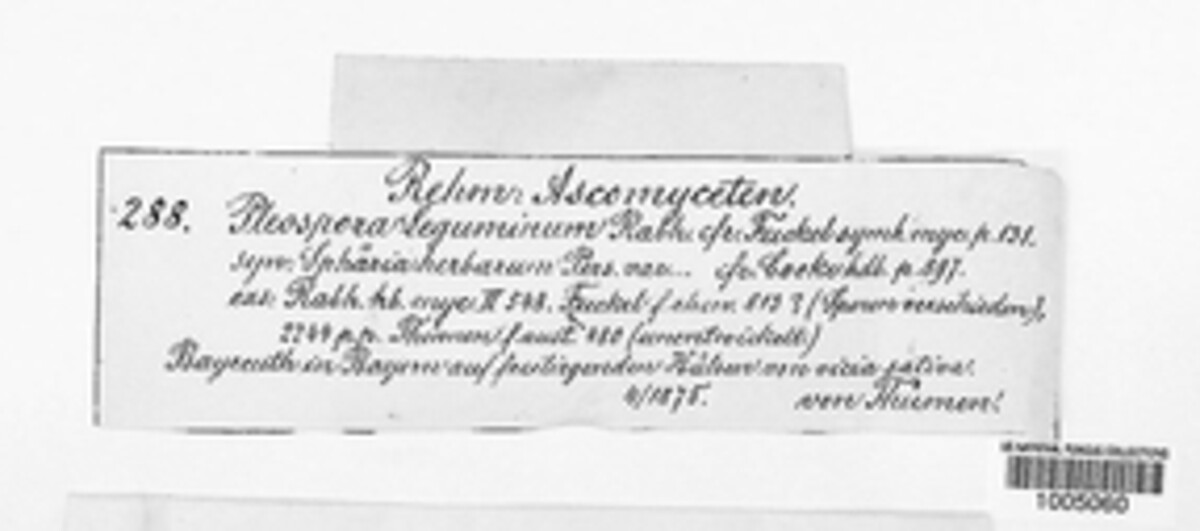 Rehm: Ascomyceten.
288. Pleospora leguminum Rabh. cfr. Fuckel symb. myc. p. 131.
syn: Sphäria herbarum Pers. var... cfr. Cooke hdb. p. 897.
exs: Rabh. hb. myc. II 548. Fuckel f. rhen. 813 ? (Sporen verschieden),
2244 p.p. Thümen f. aust. 480 (unentwickelt)
Bayreuth in Bayern auf Hülsen von vicia sativa.
4/1875. von Thümen!
US NATIONAL FUNGUS COLLECTIONS
1005060